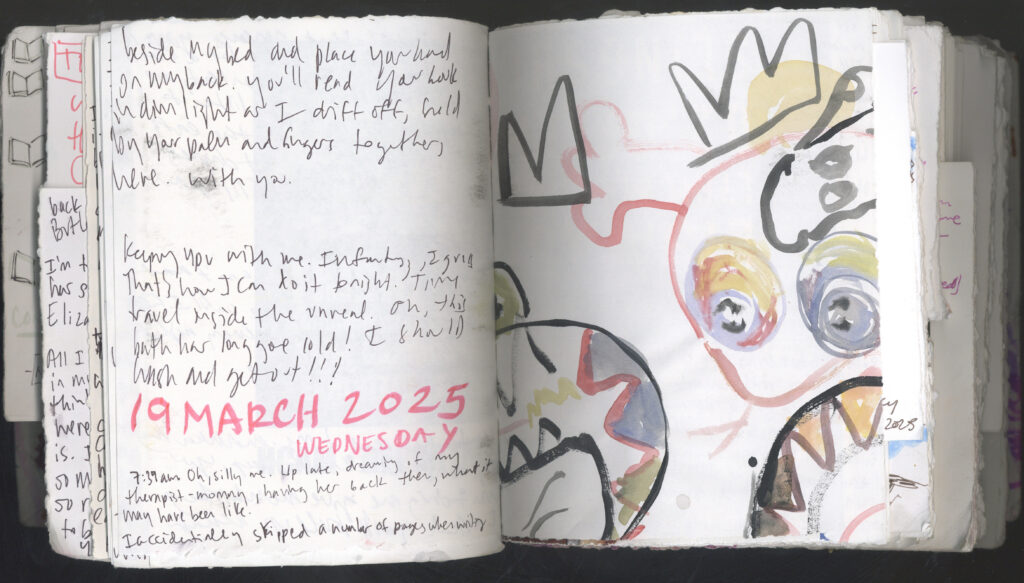 beside my bed and place your hand
on my back. You'll read your book
in dim light as I drift off, held
by your palm and fingers together,
here. With you.
Keeping you with me. Infantry, I
That's how I can do it bright. Tiny
travel inside the unreal. Oh, this
bath has long gone cold! I should
wash and get out!!!
19 MARCH 2025
WEDNESDAY
7:39am Oh, silly me. Up late, dreaming of my
therapist-mommy, having her back then, what it
may have been like.
I accidentally skipped a number of pages when writing
back
I'm t
has s
Eliza
All I
in my
thin
here
is. I
so m
so r
to b
y
2025